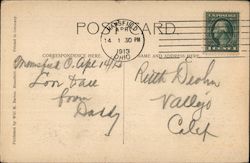 POST CARD.
CORRESPONDENCE HERE
NAME AND ADDRESS HERE
MANSFIELD
APR
14 1 30 PM
1913
OHIO
Mansfield O. Apr 14/13
Love to all
from
Daddy
Ruth
Vallejo
Calif